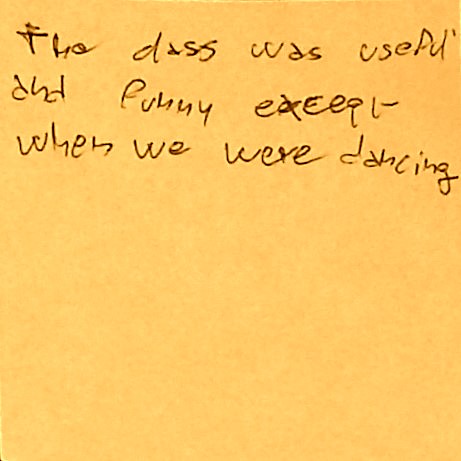 The class was useful
and funny except
when we were dancing